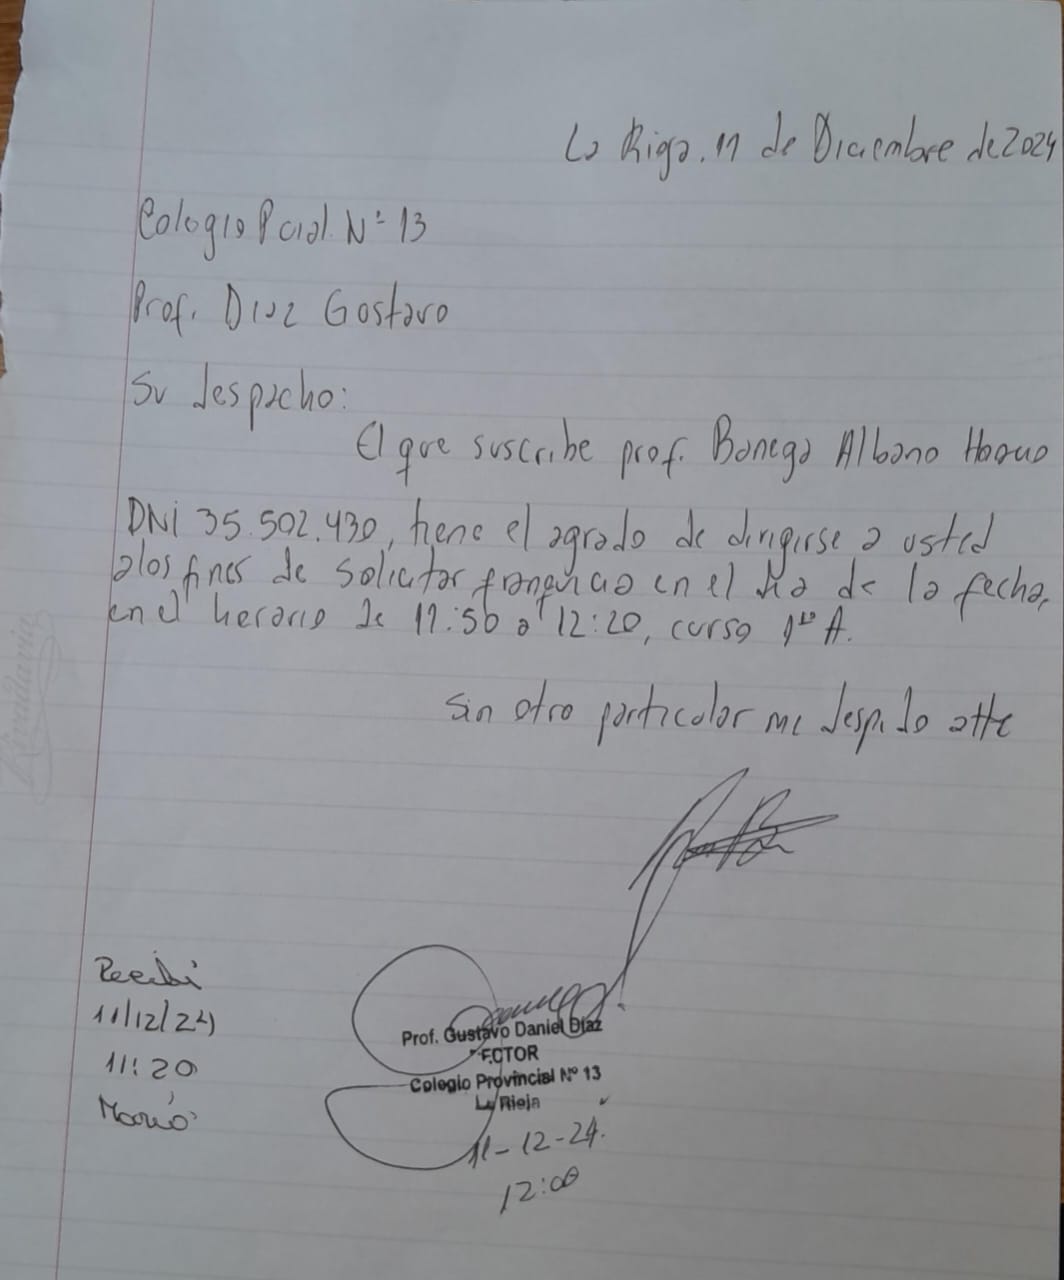 La Rioja, 11 de Diciembre de 2024
Colegio Pcial. N° 13
Prof. Diaz Gostavo
Su despacho:
El que suscribe prof. Banega Albano
DNI 35.502.430, tiene el agrado de dirigirse a usted
a los fines de solicitar franquicia en el dia de la fecha,
en el horario de 11:50 a 12:20, curso 1° A.
Sin otro particular me despido atte
Recibi
11/12/24
11:20
Prof. Gustavo Daniel Díaz
ECTOR
Colegio Provincial Nº 13
La Rioja
11-12-24.
12:00
Rivadavia